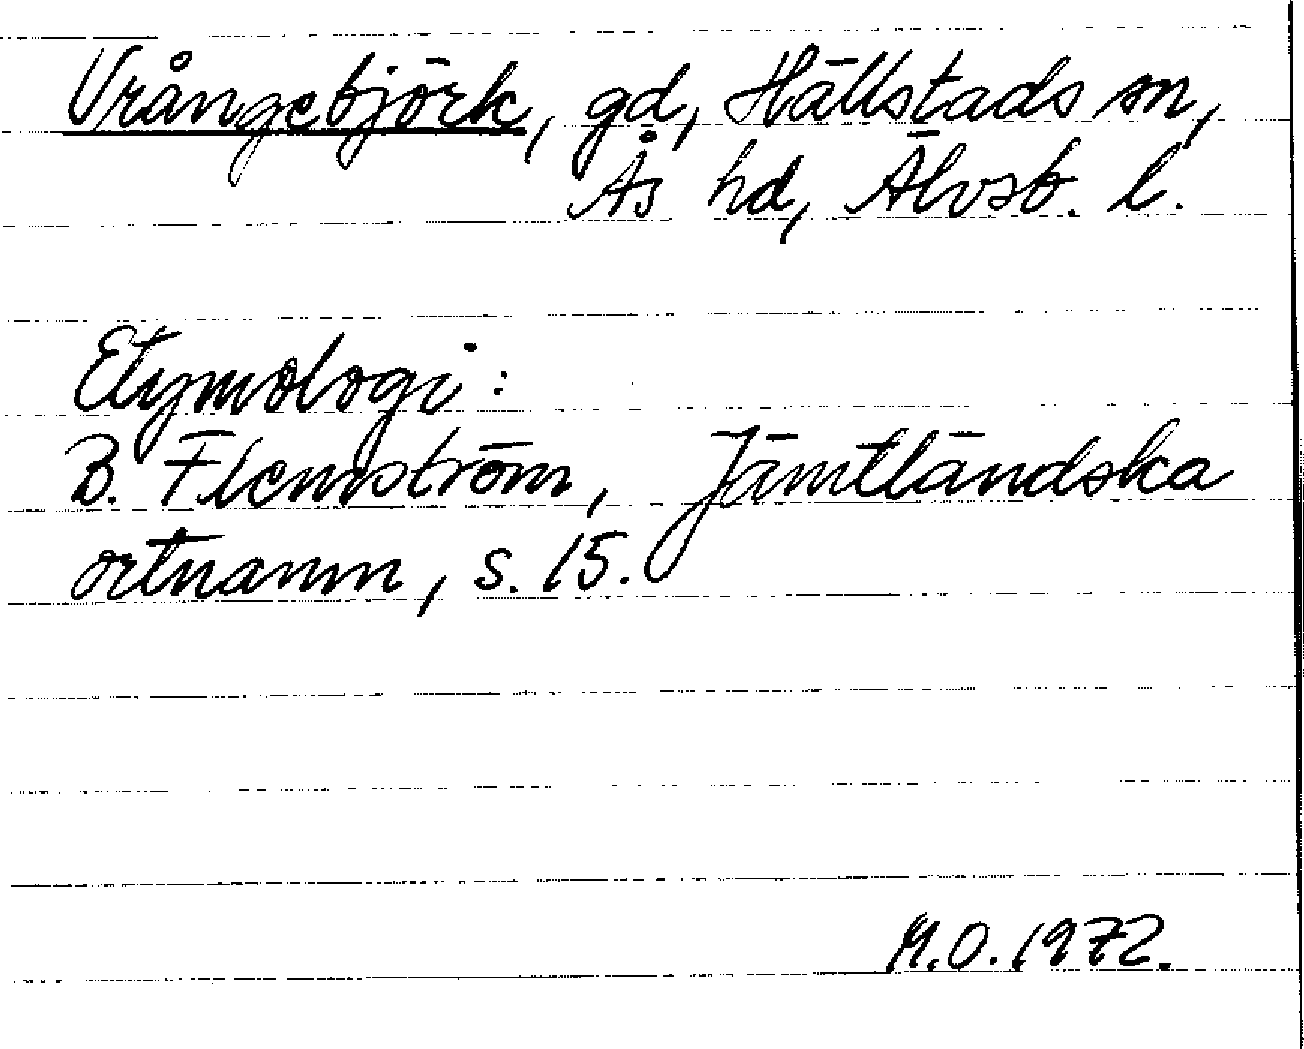 Vrångebjörk, gd, Hällstads sn,
Ås hd, Älvsb. l.
Etymologi:
B. Flemström, Jämtländska
ortnamn, s. 15.
M.O. 1972.